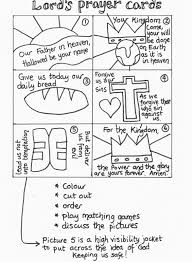 Lord's prayer cards
1
Our Father in heaven,
Hallowed be your name
2
Your Kingdom
Come, your
will be
done on
Earth as
it is
in heaven
3
Give us today our
daily bread
4
Forgive
us our
sins
As we
forgive those
who sin
against
us.
5
Lead us not
into temptation
But deliver
from evil
6
For the Kingdom,
the Power and the glory
are yours forever. Amen
* Colour
* cut out
* order
* play matching games
* discuss the pictures
Picture 5 is a high visibility jacket
to put across the idea of God
Keeping us safe!